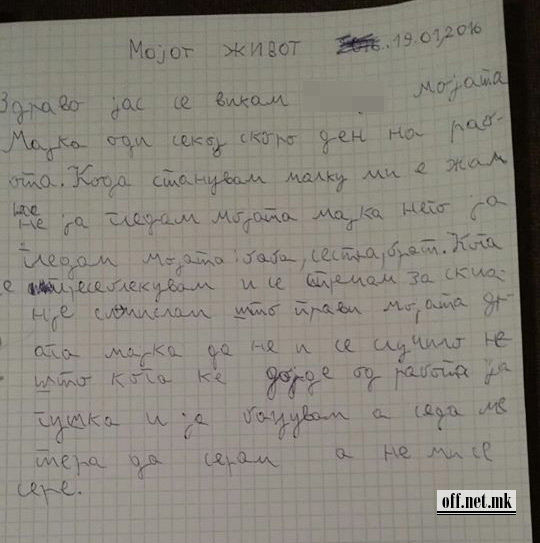 Мојот живот 19.01,2016
Здраво јас се викам мојата
Мајка оди секој скоро ден на рабо-
ота. Кода станувам малку ми е жал
што
не ја гледам мојата мајка него ја
гледам мојата баба, сестра, брат. Кога
се облекувам и се спремам за скиа-
ње смислам што прави мојата
мајка да не и се случило не
што кога ќе дојде од работа ја
гушка и ја бацувам а седа ме
тера да серам а не ми се
сере.
off.net.mk